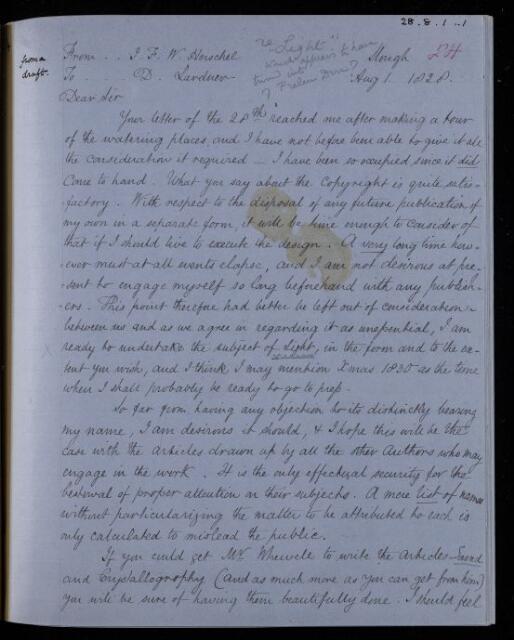 28.8.1..1
from a
draft.
From .. J. F. W. Herschel
To .. D. Lardner
re "Light"
which appears to have
turned into
? Prelim Disc ?
Slough
Aug 1. 1828.
Dear Sir
Your letter of the 28th reached me after making a tour
of the watering places, and I have not before been able to give it all
the consideration it required — I have been so occupied since it did
come to hand. What you say about the Copyright is quite satis-
factory. With respect to the disposal of any future publication of
my own in a separate form, it will be time enough to consider of
that if I should live to execute the design. A very long time how-
ever must at all events elapse, and I am not desirous at pre-
sent to engage myself so long beforehand with any publish-
ers. This point therefore had better be left out of consideration
between us and as we agree in regarding it as unessential, I am
ready to undertake the subject of Light, in the form and to the ex-
tent you wish, and I think I may mention Xmas 1830 as the time
when I shall probably be ready to go to press.
So far from having any objection to its distinctly bearing
my name, I am desirous it should, & I hope this will be the
case with the Articles drawn up by all the other Authors who may
engage in the work. It is the only effectual security for the
bestowal of proper attention on their subjects. A mere list of names
without particularizing the matter to be attributed to each is
only calculated to mislead the public.
If you could get Mr Whewell to write the Articles Sound
and Crystallography (and as much more as you can get from him)
you will be sure of having them beautifully done. I should feel